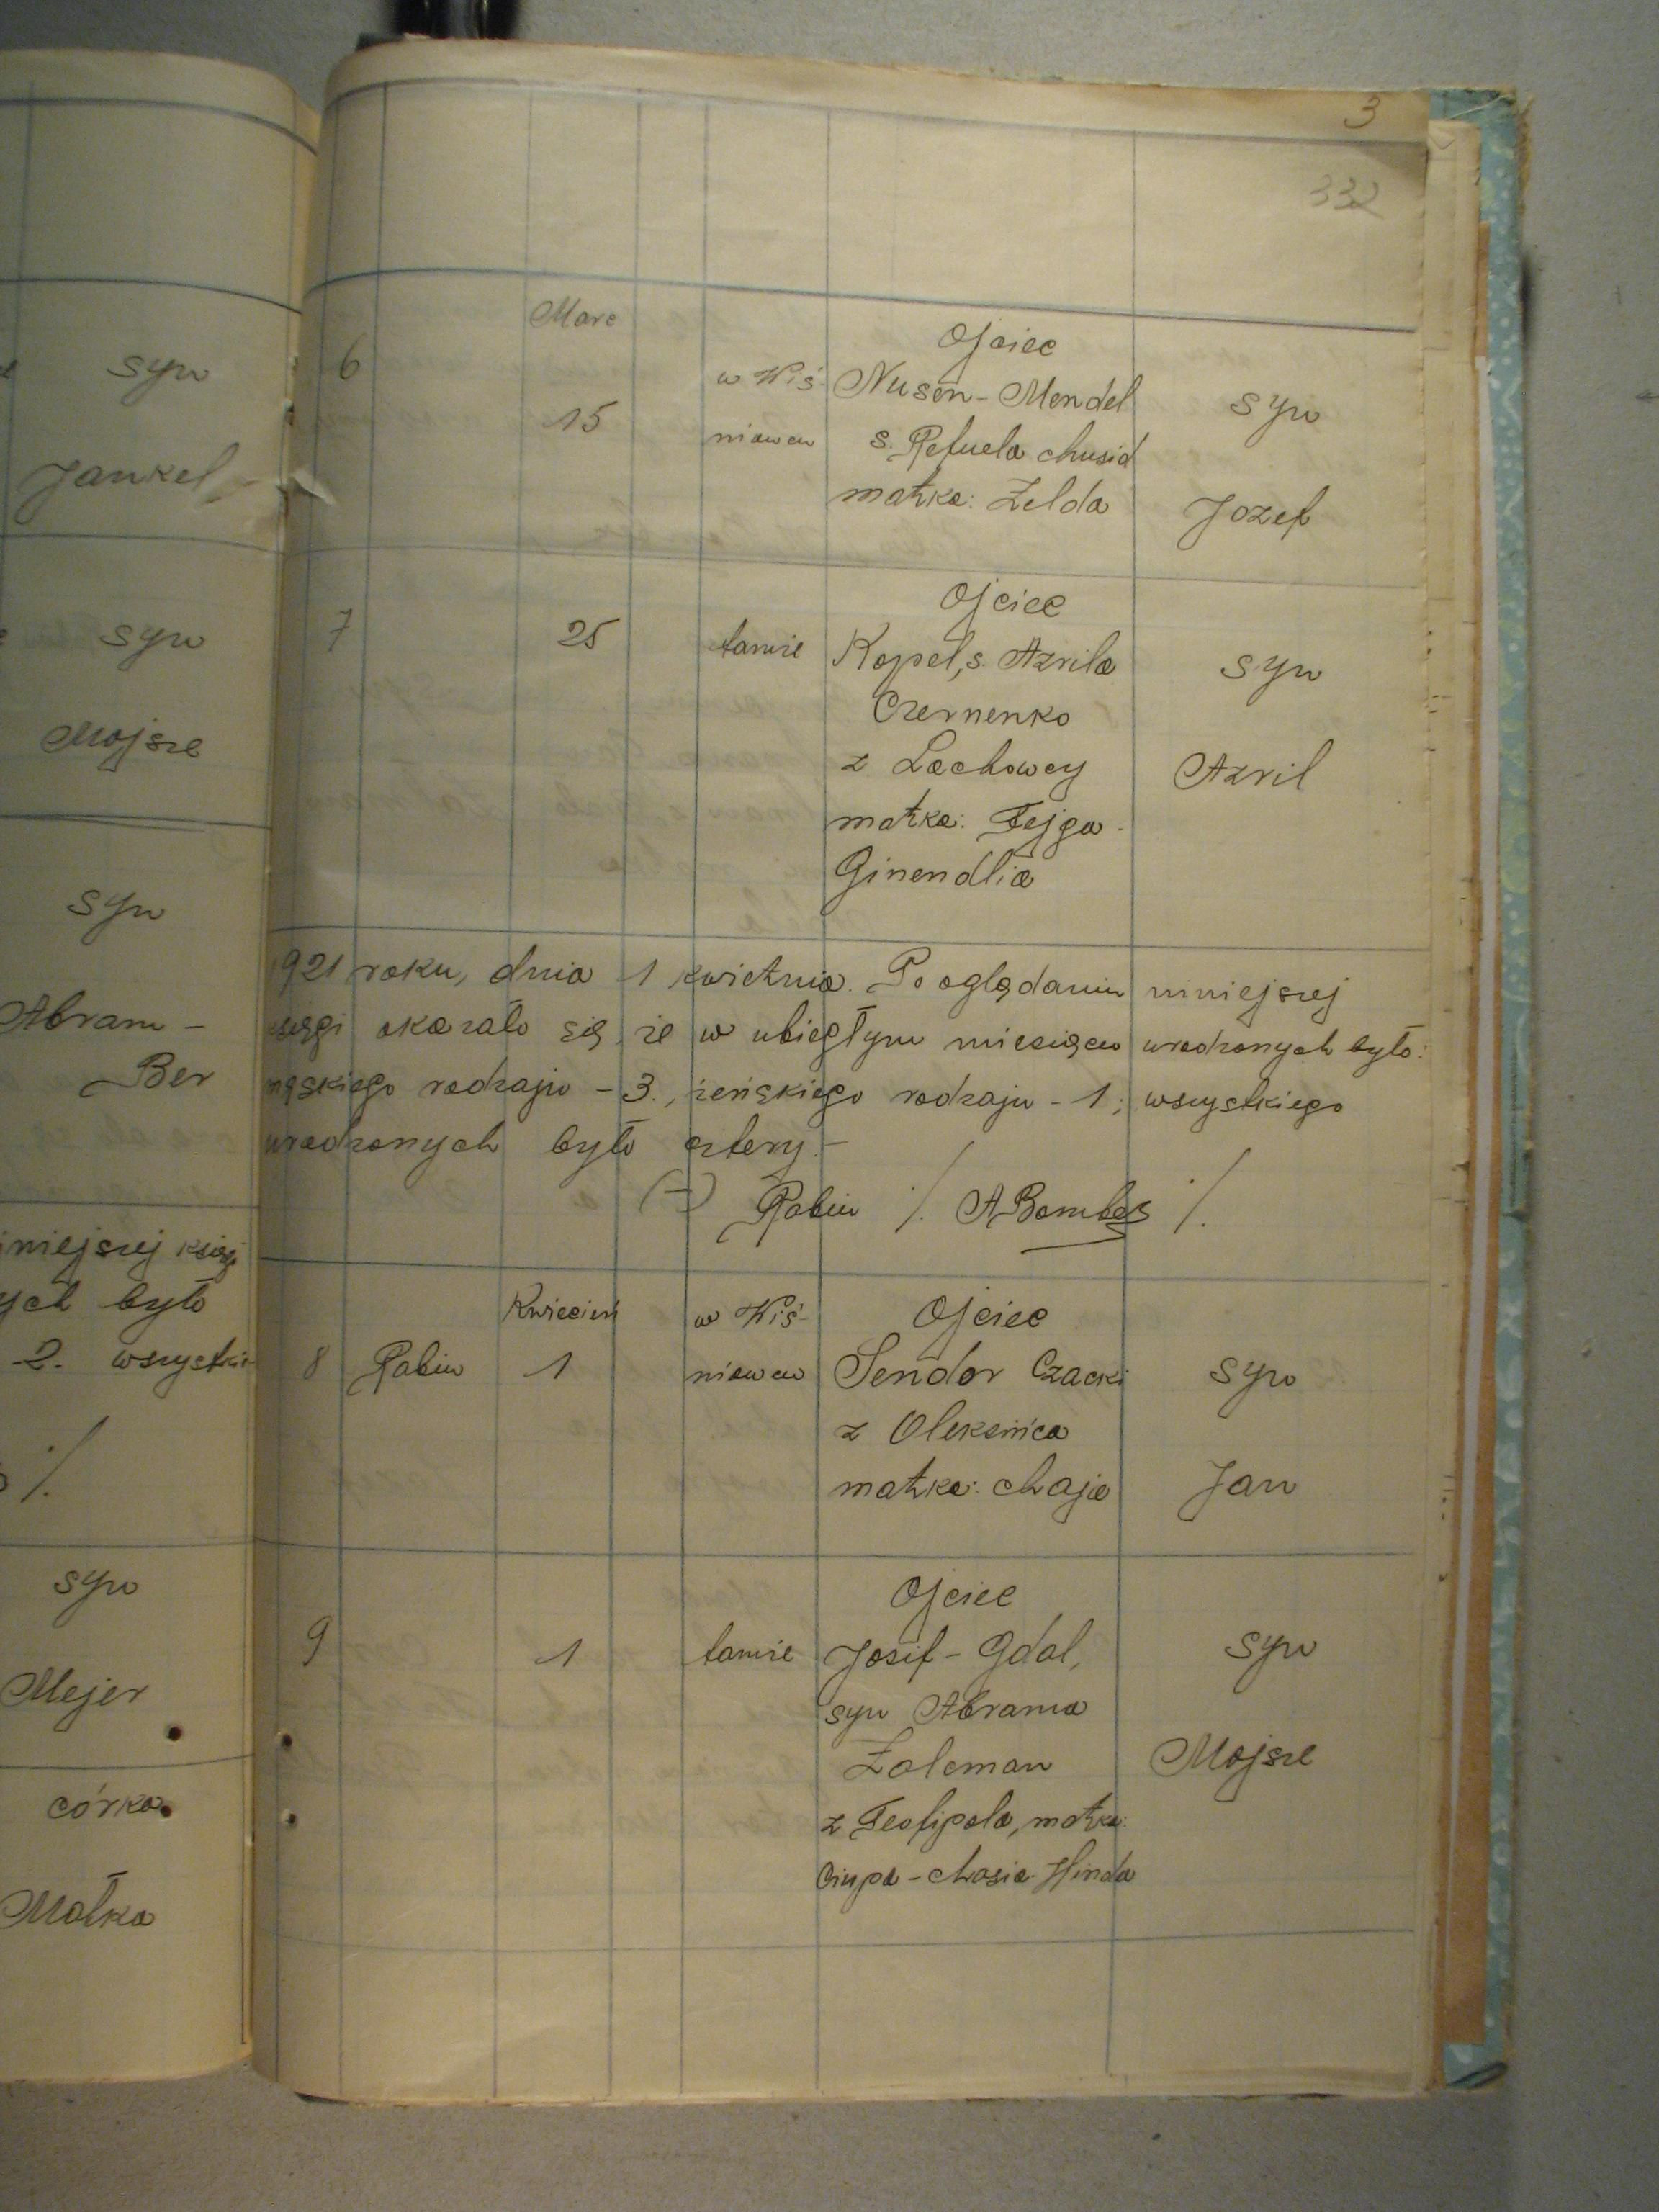 syn
Jankel
syn
Mojsze
syn
Abram-
Ber
niniejszej księgi
było
-2. wszystkie
syn
Mejer
córka
Małka
3
332
Marc
Ojciec
6
w Wiś-
Nusen-Mendel
syn
15
niowcu
s. Refuela Chusid
matka: Zelda
Jozef
Ojciec
7
25
tamże
Kopel, s. Azrila
syn
Czernenko
z Lachowcy
Azril
matka: Fejga-
Ginendlia
1921 roku, dnia 1 kwietnia. Po oglądaniu niniejszej
księgi okazało się, że w ubiegłym miesiącu urodzonych było:
męskiego rodzaju - 3., żeńskiego rodzaju - 1; wszystkiego
urodzonych było cztery.-
(-) Rabin /. A Bombes /.
Kwiecień
w Wiś-
Ojciec
8
Rabin
1
niowcu
Sendor Czacki
syn
z Oleksińca
matka: Chaja
Jan
Ojciec
9
1
tamże
Josif-Gdal,
syn
syn Abrama
Zalcman
Mojsze
z Teofipola, matka:
Cinpa-Chasia-Hinda